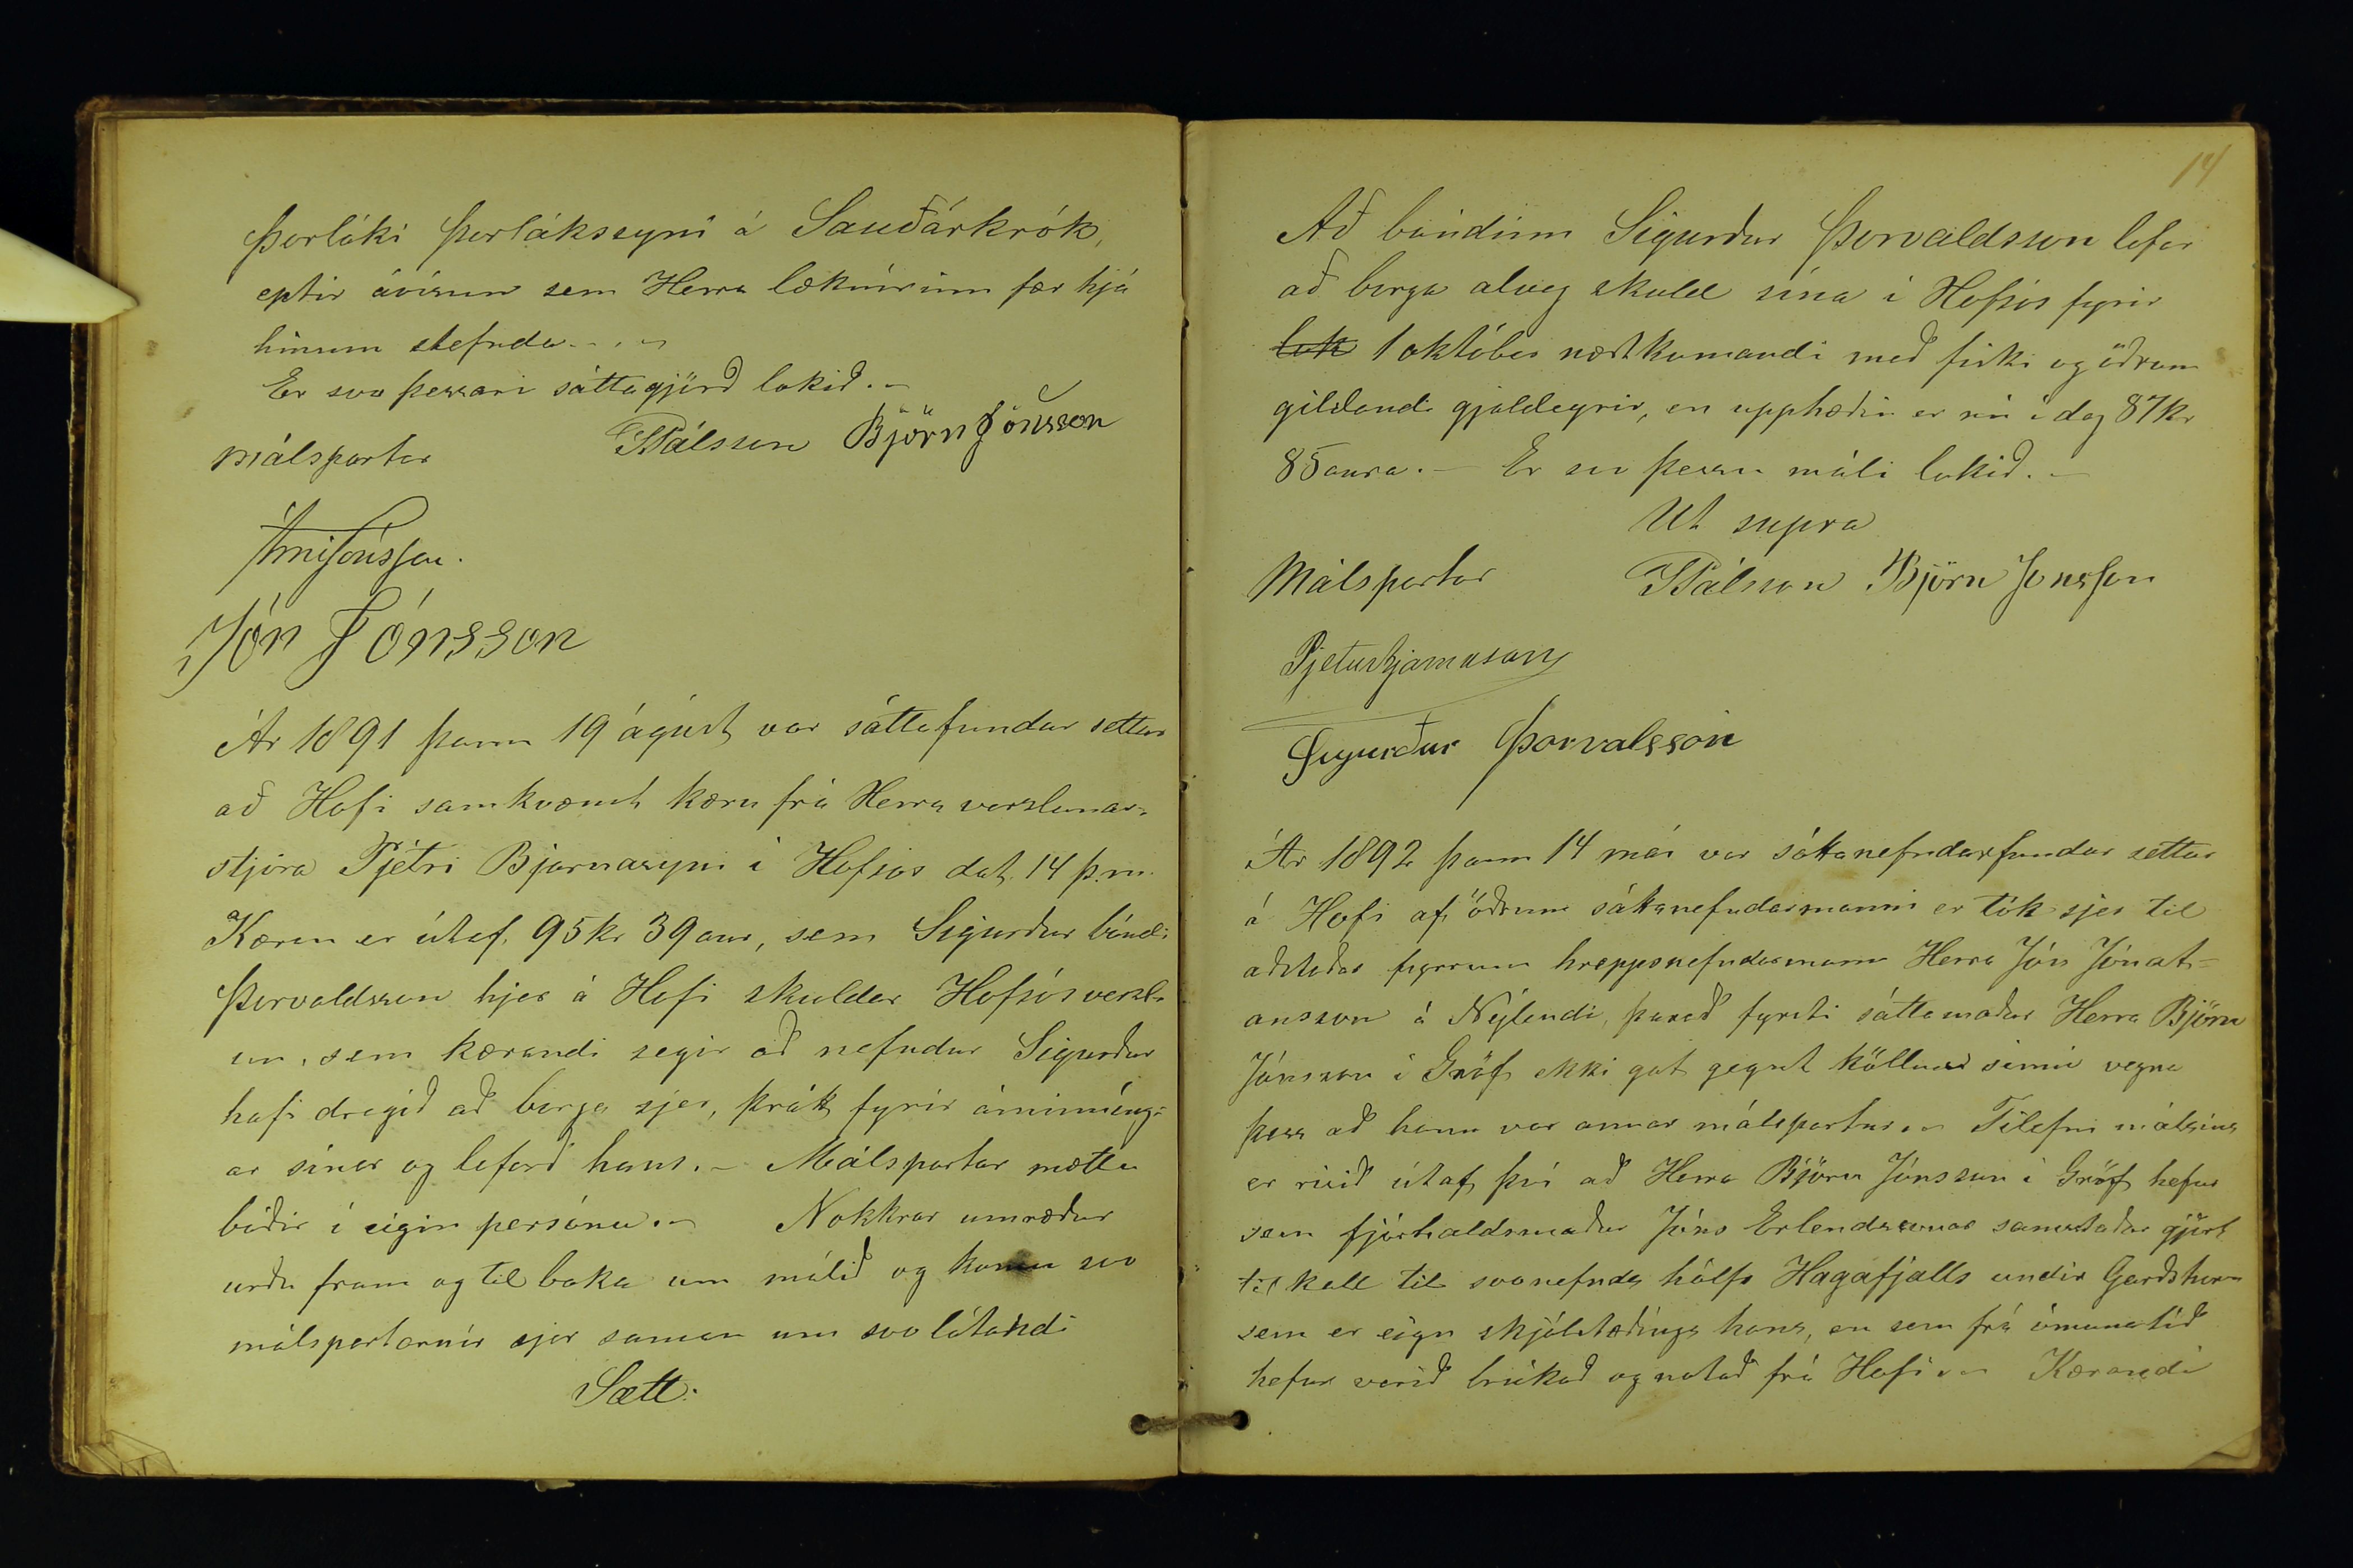 Þorláki Þorlákssyni á Sauðárkrók,
eptir ávísun sem Herra læknirinn fær hjá
hinum stefnda. –
Er svo þessari sáttagjörð lokið. –
Málspartar PPálsson Björn Jónsson
Árni Jónsson.
Jón Jónsson
Ár 1891 þann 19 ágúst var sáttafundur settur
að Hofi samkvæmt kæru frá Herra verslunar-
stjóra Pjetri Bjarnasyni í Hofsós dat. 14 þ.m.
Kæran er útaf 95 kr 39 aur, sem Sigurður bóndi
Þorvaldsson hjer á Hofi skuldar Hofsósversl-
un, sem kærandi segir að nefndur Sigurður
hafi dregið að borga sjer, þrátt fyrir áminníng-
ar sínar og loforð hans. – Málspartar mættu
báðir í eigin persónu. – Nokkrar umræður
urðu fram og til baka um málið og komu svo
málspartarnir sjer saman um svo látandi
Sætt:
14
Að bóndinn Sigurður Þorvaldsson lofar
að borga alveg skuld sína í Hofsós fyrir
lok 1 október næstkomandi með fiski og öðrum
gildandi gjaldeyrir, en upphæðin er nú í dag 87 kr
85 aura. – Er svo þessu máli lokið. –
Ut supra
Málspartar PPálsson Björn Jónsson
Pjetur Bjarnason
Sigurður Þorvalsson
Ár 1892 þann 14 maí var sáttanefndarfundur settur
á Hofi af öðrum sáttanefndarmanni er tók sjer til
aðstoðar fyrrum hreppsnefndarmann Herra Jón Jónat-
ansson á Nýlendi, þareð fyrsti sáttamaður Herra Björn
Jónsson í Gröf ekki gat gegnt köllun sinni vegna
þess að hann var annar málspartur. – Tilefni málsins
er risið útaf því að Herra Björn Jónsson í Gröf hefur
sem fjárhaldsmaður Jóns Erlendssonar samastaðar gjört
tilkall til svonefnds hálfs Hagafjalls undir Garðshorn
sem er eign skjólstæðings hans, en sem frá ómunatíð
hefur verið brúkað og notað frá Hofi. – Kærandi